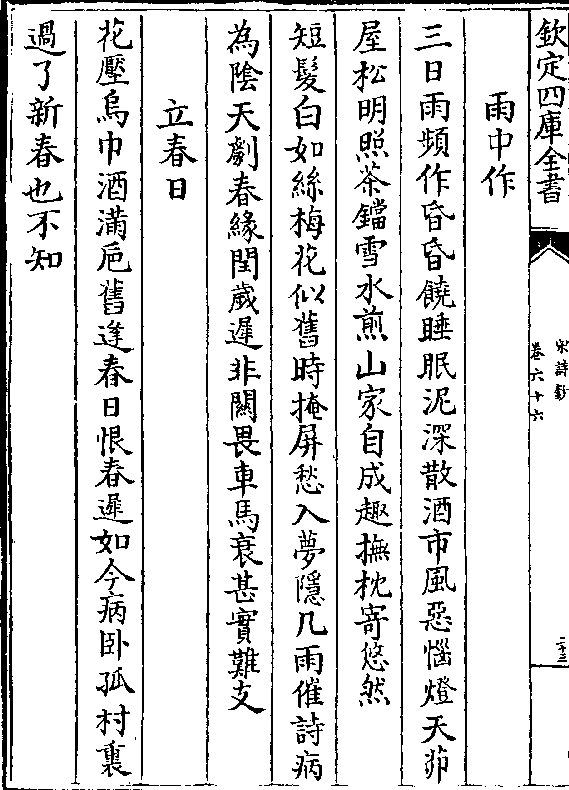 欽定四庫全書
宋詩鈔
卷六十六
二十三
雨中作
三日雨頻作昏昏饒睡眠泥深散酒市風惡惱燈天茆
屋松明照茶鐺雪水煎山家自成趣撫枕寄悠然
短髮白如絲梅花似舊時掩屏愁入夢隱几雨催詩病
為陰天劇春緣閏歲遲非關畏車馬衰甚實難支
立春日
花壓烏巾酒滿巵舊逢春日恨春遲如今病卧孤村裏
過了新春也不知